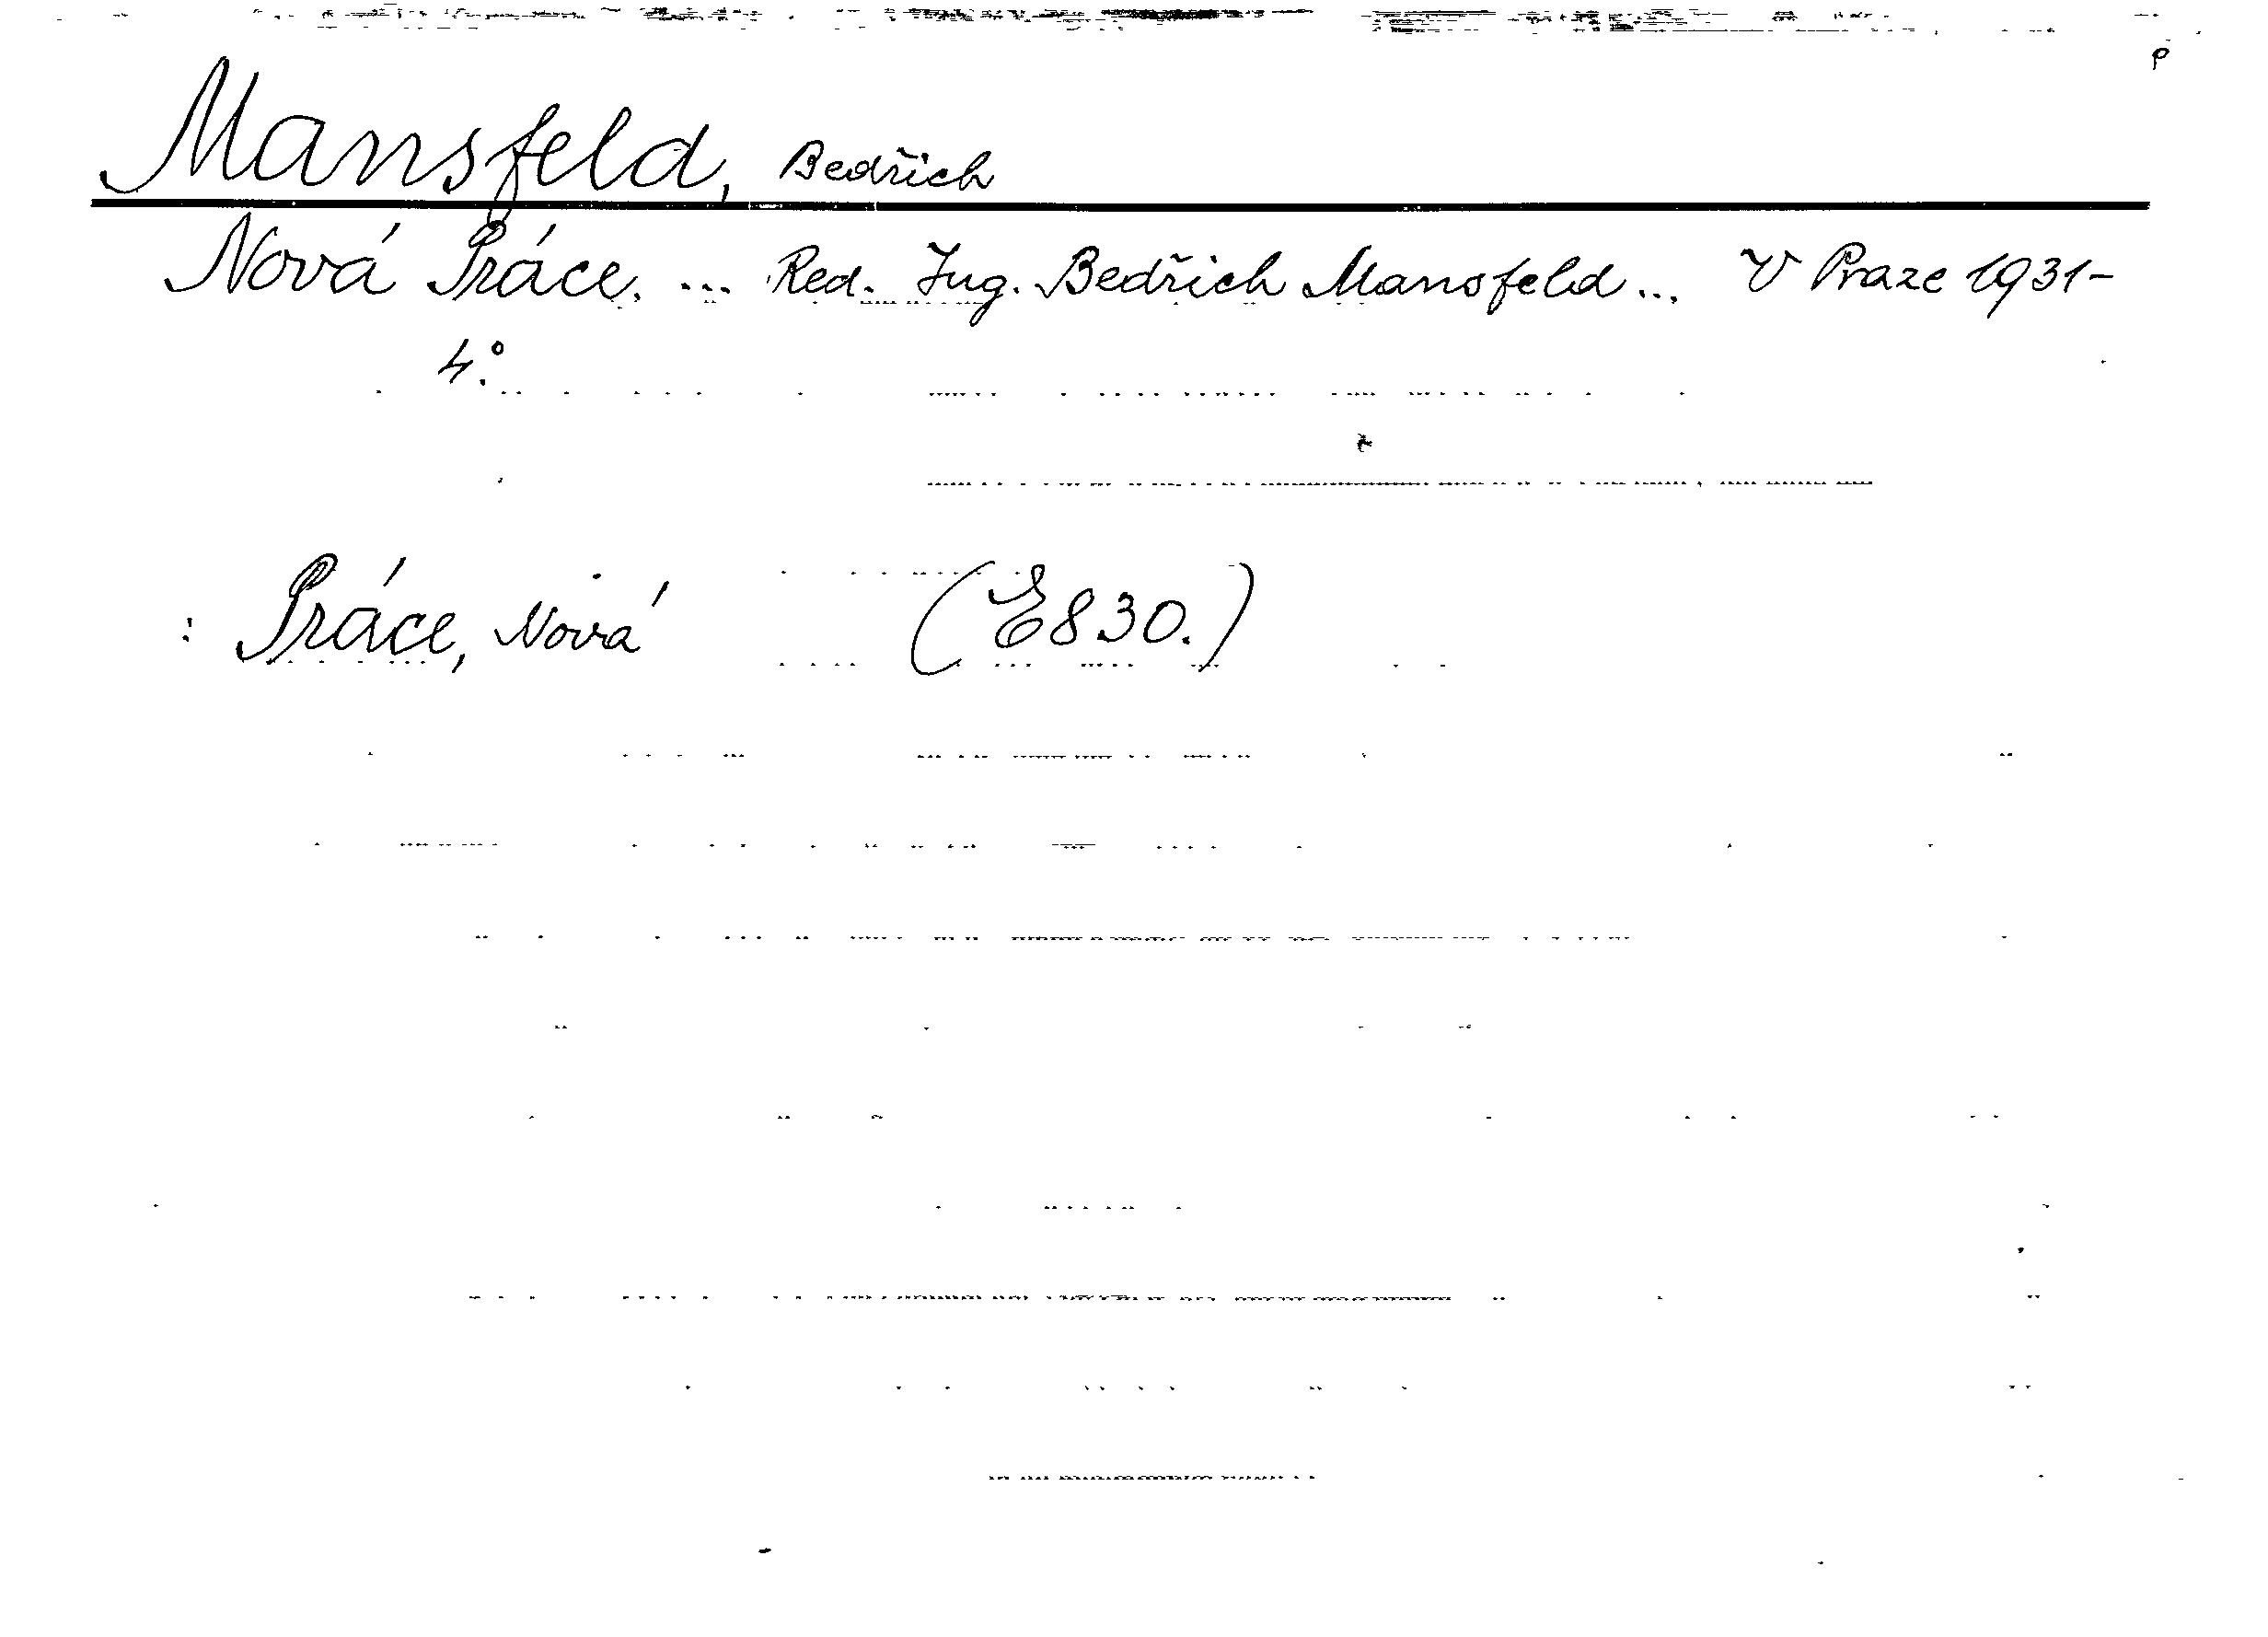 p
Mansfeld, Bedřich
Nová Práce. ... Red. Ing. Bedřich Mansfeld ... V Praze 1931-
4°.
: Práce, Nová (E830.)